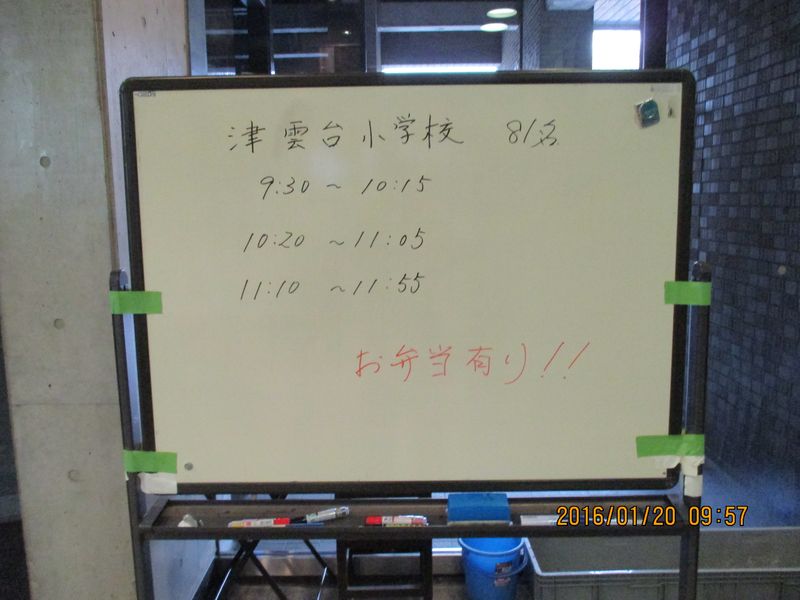 津雲台小学校 81名
9:30 ~ 10:15
10:20 ~ 11:05
11:10 ~ 11:55
お弁当有り!!
2016/01/20 09:57